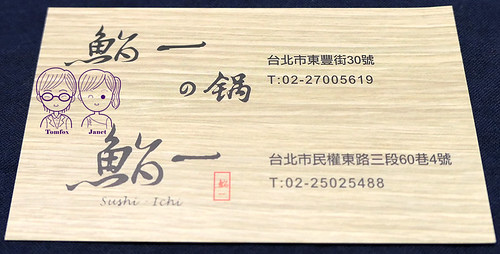 鮨一
の锅
台北市東豐街30號
T:02-27005619
Tomfox Janet
鮨一
Sushi - Ichi
鮨一
台北市民權東路三段60巷4號
T:02-25025488